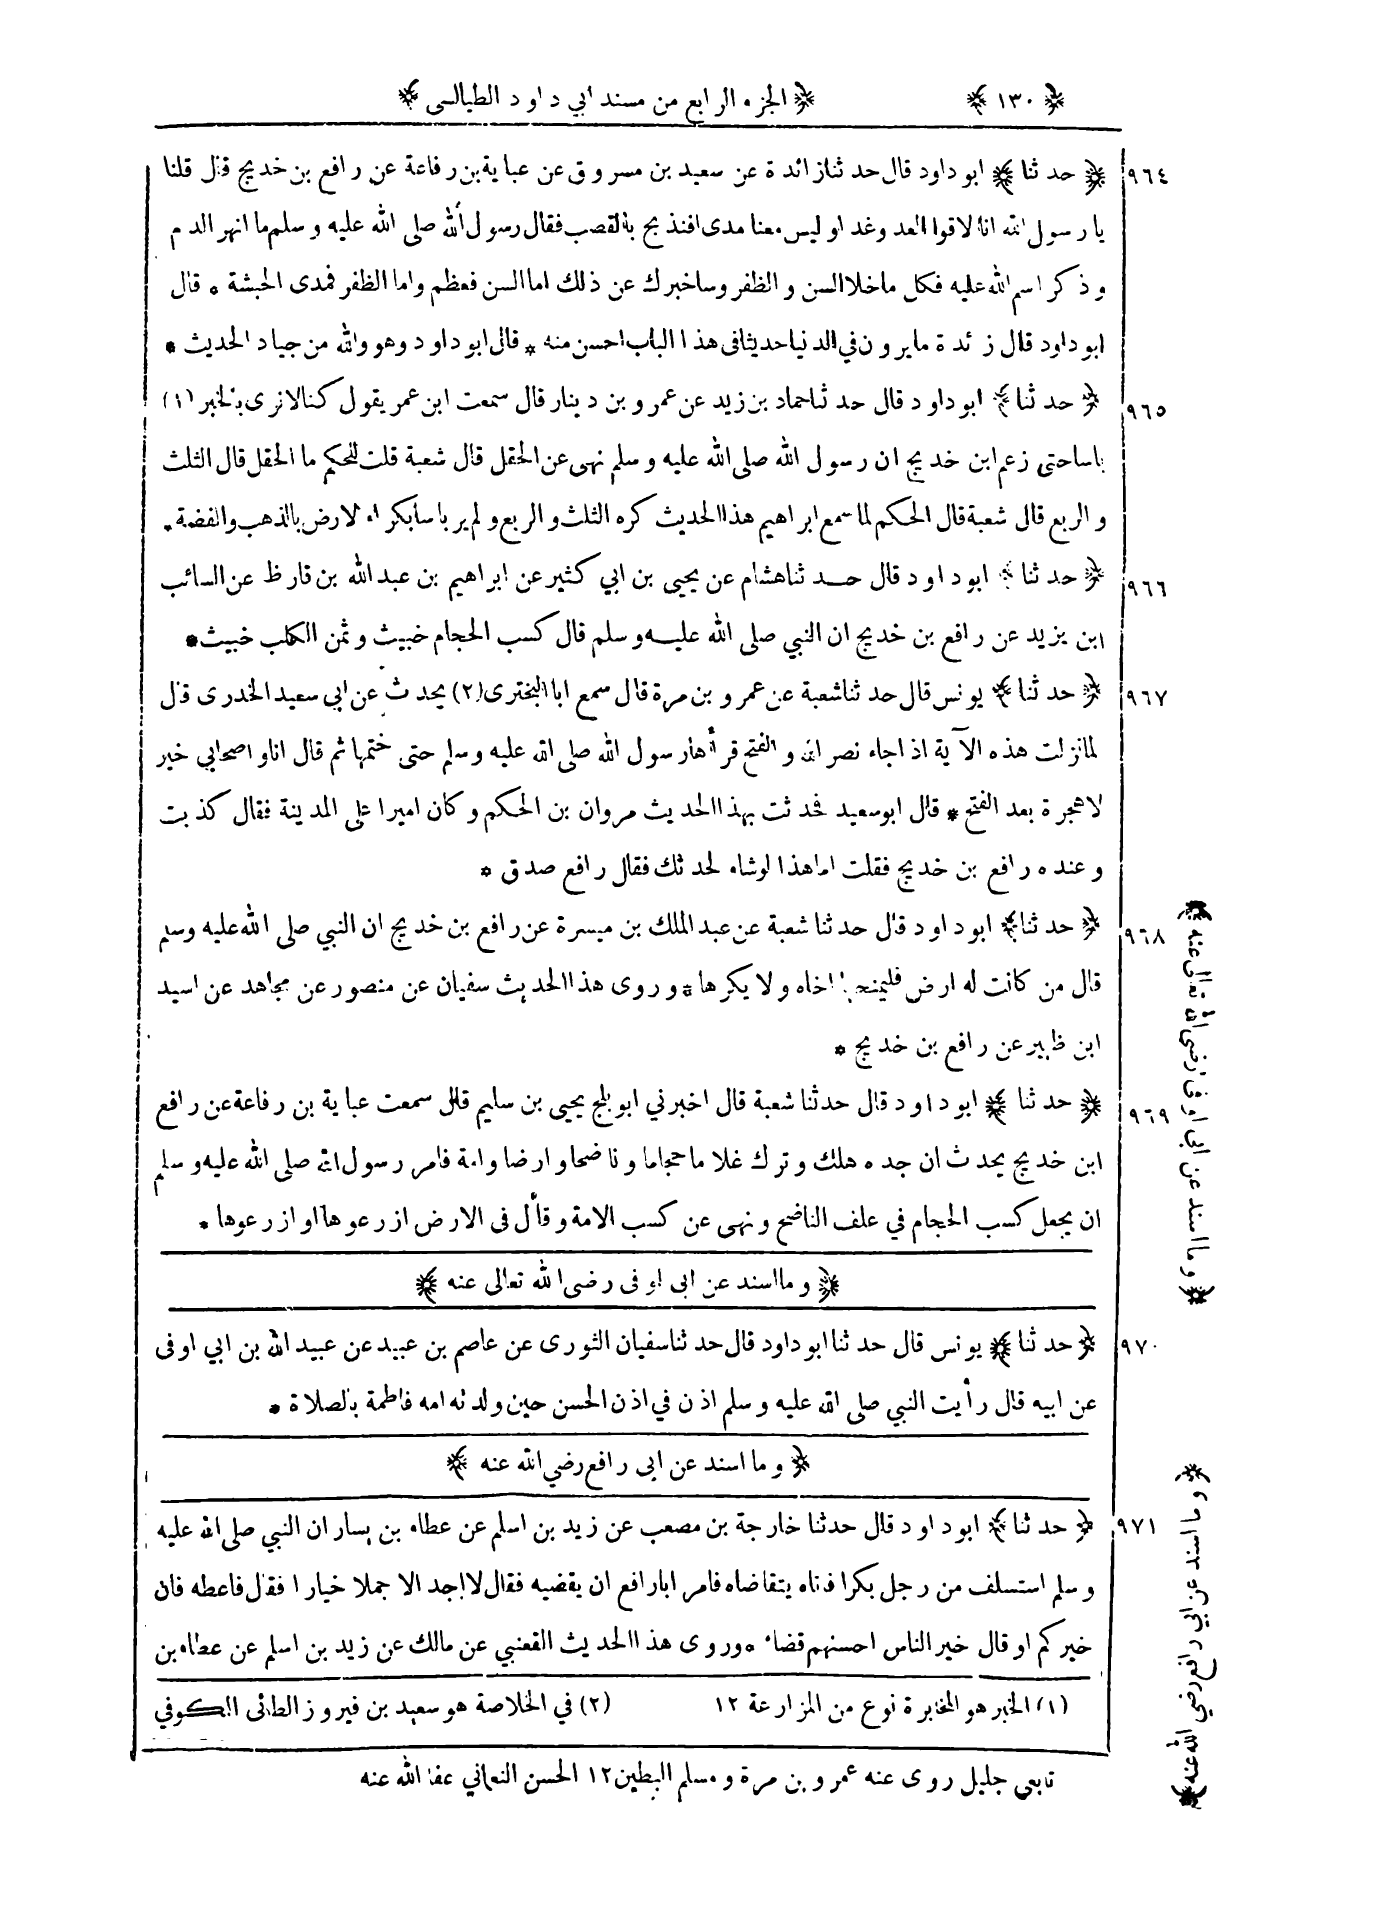 ﴿ ١٣٠ ﴾ ﴿ الجزء الرابع من مسند ابي داود الطيالسى ﴾
٩٦٤ ﴿ حدثنا ﴾ ابوداود قال حدثنا زائدة عن سعيد بن مسروق عن عباية بن رفاعة عن رافع بن خديج قال قلنا
يا رسول الله انا لاقوا العدو غدا وليس معنا مدى افنذبح بالقصب فقال رسول الله صلى الله عليه وسلم ما انهر الدم
وذكر اسم الله عليه فكل ماخلا السن والظفر وساخبرك عن ذلك اما السن فعظم واما الظفر فمدى الحبشة * قال
ابوداود قال زائدة ما يرون في الدنيا حديثا فى هذا الباب احسن منه * قال ابوداود وهو والله من جياد الحديث *
٩٦٥ ﴿ حدثنا ﴾ ابوداود قال حدثنا حماد بن زيد عن عمرو بن دينار قال سمعت ابن عمر يقول كنا لا نرى بالخبر (١)
باسا حتى زعم ابن خديج ان رسول الله صلى الله عليه وسلم نهى عن الحقل قال شعبة قلت للحكم ما الحقل قال الثلث
والربع قال شعبة قال الحكم لما سمع ابراهيم هذا الحديث كره الثلث والربع ولم ير باسا بكراء الارض بالذهب والفضة *
٩٦٦ ﴿ حدثنا ﴾ ابوداود قال حدثنا هشام عن يحيى بن ابي كثير عن ابراهيم بن عبد الله بن قارظ عن السائب
ابن يزيد عن رافع بن خديج ان النبي صلى الله عليه وسلم قال كسب الحجام خبيث وثمن الكلب خبيث *
٩٦٧ ﴿ حدثنا ﴾ يونس قال حدثنا شعبة عن عمرو بن مرة قال سمع ابا البخترى (٢) يحدث عن ابى سعيد الخدرى قال
لما نزلت هذه الآية اذا جاء نصر الله والفتح قرأها رسول الله صلى الله عليه وسلم حتى ختمها ثم قال انا واصحابي خير
لا هجرة بعد الفتح * قال ابوسعيد فحدثت بهذا الحديث مروان بن الحكم وكان اميرا على المدينة فقال كذبت
وعنده رافع بن خديج فقلت اما هذا لو شاء لحدثك فقال رافع صدق *
٩٦٨ ﴿ حدثنا ﴾ ابوداود قال حدثنا شعبة عن عبد الملك بن ميسرة عن رافع بن خديج ان النبي صلى الله عليه وسلم
قال من كانت له ارض فليمنحها اخاه ولا يكرها * وروى هذا الحديث سفيان عن منصور عن مجاهد عن اسيد
ابن ظهير عن رافع بن خديج *
٩٦٩ ﴿ حدثنا ﴾ ابوداود قال حدثنا شعبة قال اخبرني ابوبلج يحيى بن سليم قال سمعت عباية بن رفاعة عن رافع
ابن خديج يحدث ان جده هلك وترك غلاما حجاما وناضحا وارضا وامة فامر رسول الله صلى الله عليه وسلم
ان يجعل كسب الحجام في علف الناضح ونهى عن كسب الامة وقال فى الارض ازرعوها او ازرعوها *
﴿ وما اسند عن ابى اوفى رضى الله تعالى عنه ﴾
٩٧٠ ﴿ حدثنا ﴾ يونس قال حدثنا ابوداود قال حدثنا سفيان الثورى عن عاصم بن عبيد عن عبيد الله بن ابي اوفى
عن ابيه قال رأيت النبي صلى الله عليه وسلم اذن في اذن الحسن حين ولدته امه فاطمة بالصلاة *
﴿ وما اسند عن ابى رافع رضي الله عنه ﴾
٩٧١ ﴿ حدثنا ﴾ ابوداود قال حدثنا خارجة بن مصعب عن زيد بن اسلم عن عطاء بن يسار ان النبي صلى الله عليه
وسلم استسلف من رجل بكرا فاتاه يتقاضاه فامر ابا رافع ان يقضيه فقال لا اجد الا جملا خيارا فقال فاعطه فان
خيركم او قال خير الناس احسنهم قضاء * وروى هذا الحديث القعنبي عن مالك عن زيد بن اسلم عن عطاء بن
(١) الخبر هو المخابرة نوع من المزارعة ١٢ (٢) في الخلاصة هو سعيد بن فيروز الطائى الكوفي
تابعى جليل روى عنه عمرو بن مرة ومسلم البطين ١٢ الحسن النعماني عفا الله عنه
﴿ وما اسند عن ابى اوفى رضى الله تعالى عنه ﴾
﴿ وما اسند عن ابي رافع رضي الله عنه ﴾